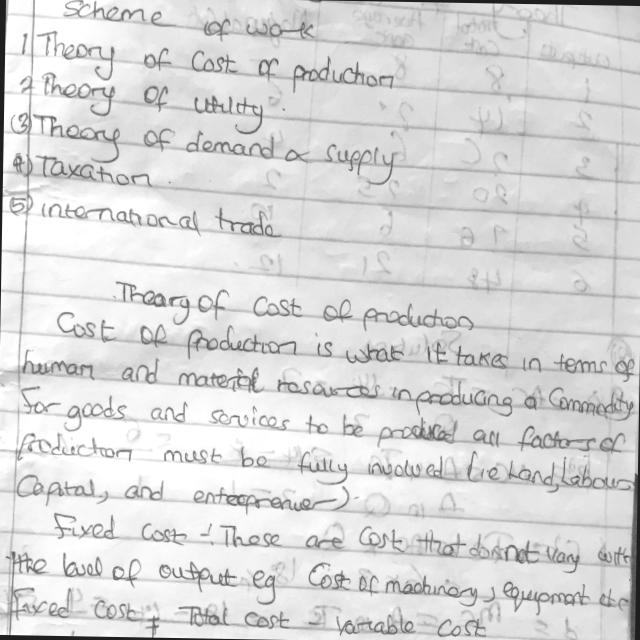 Scheme of work
1 Theory of Cost of production
2 Theory of utility.
(3) Theory of demand & supply
4) Taxation.
(5) international trade
Theory of Cost of production
Cost of production is what it takes in terms of
human and material resources in producing a Commodity
For goods and services to be produced all factors of
production must be fully involved (ie Land, Labour
Capital, and enterprenuer).
Fixed Cost :- These are Cost that do not vary with
the level of output eg Cost of machinery, equipment etc
Fixed Cost = Total cost - Variable cost